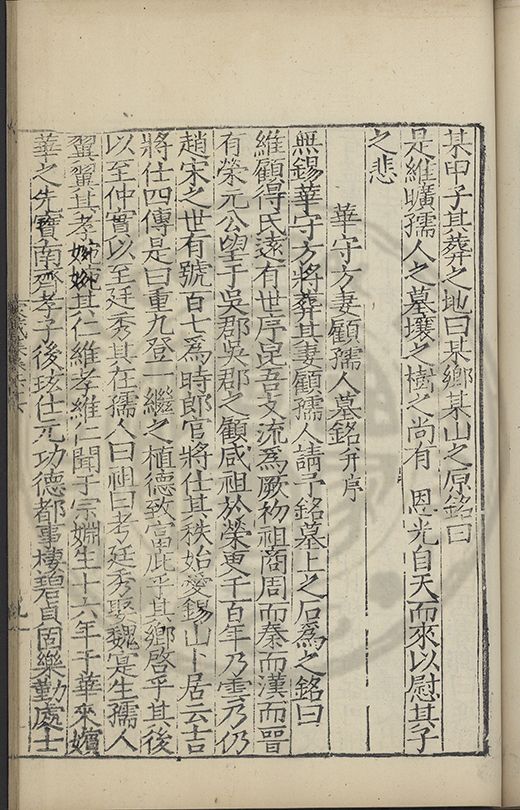 某甲子其葬之地曰某鄉某山之原銘曰
是維曠孺人之墓壤之樹之尚有　恩光自天而來以慰其子
之悲
華守方妻顧孺人墓銘并序
無錫華守方將葬其妻顧孺人請予銘墓上之石爲之銘曰
維顧得氏遠有世序昆吾文流爲厥初祖商周而秦而漢而晉
有榮元公望于吳郡吳郡之顧咸祖於榮更千百年乃雲乃仍
趙宋之世有號百七爲時郎官將仕其秩始愛錫山卜居云吉
將仕四傳是曰重九登一繼之植德致富庇乎其鄉啓乎其後
以至仲實以至廷秀其在孺人曰祖曰考廷秀娶魏寔生孺人
翼翼其孝婉婉其仁維孝維仁聞于宗婣生十六年于華來嬪
華之先寶南齊孝子後珓仕元功德都事棲碧貞固樂勤處士